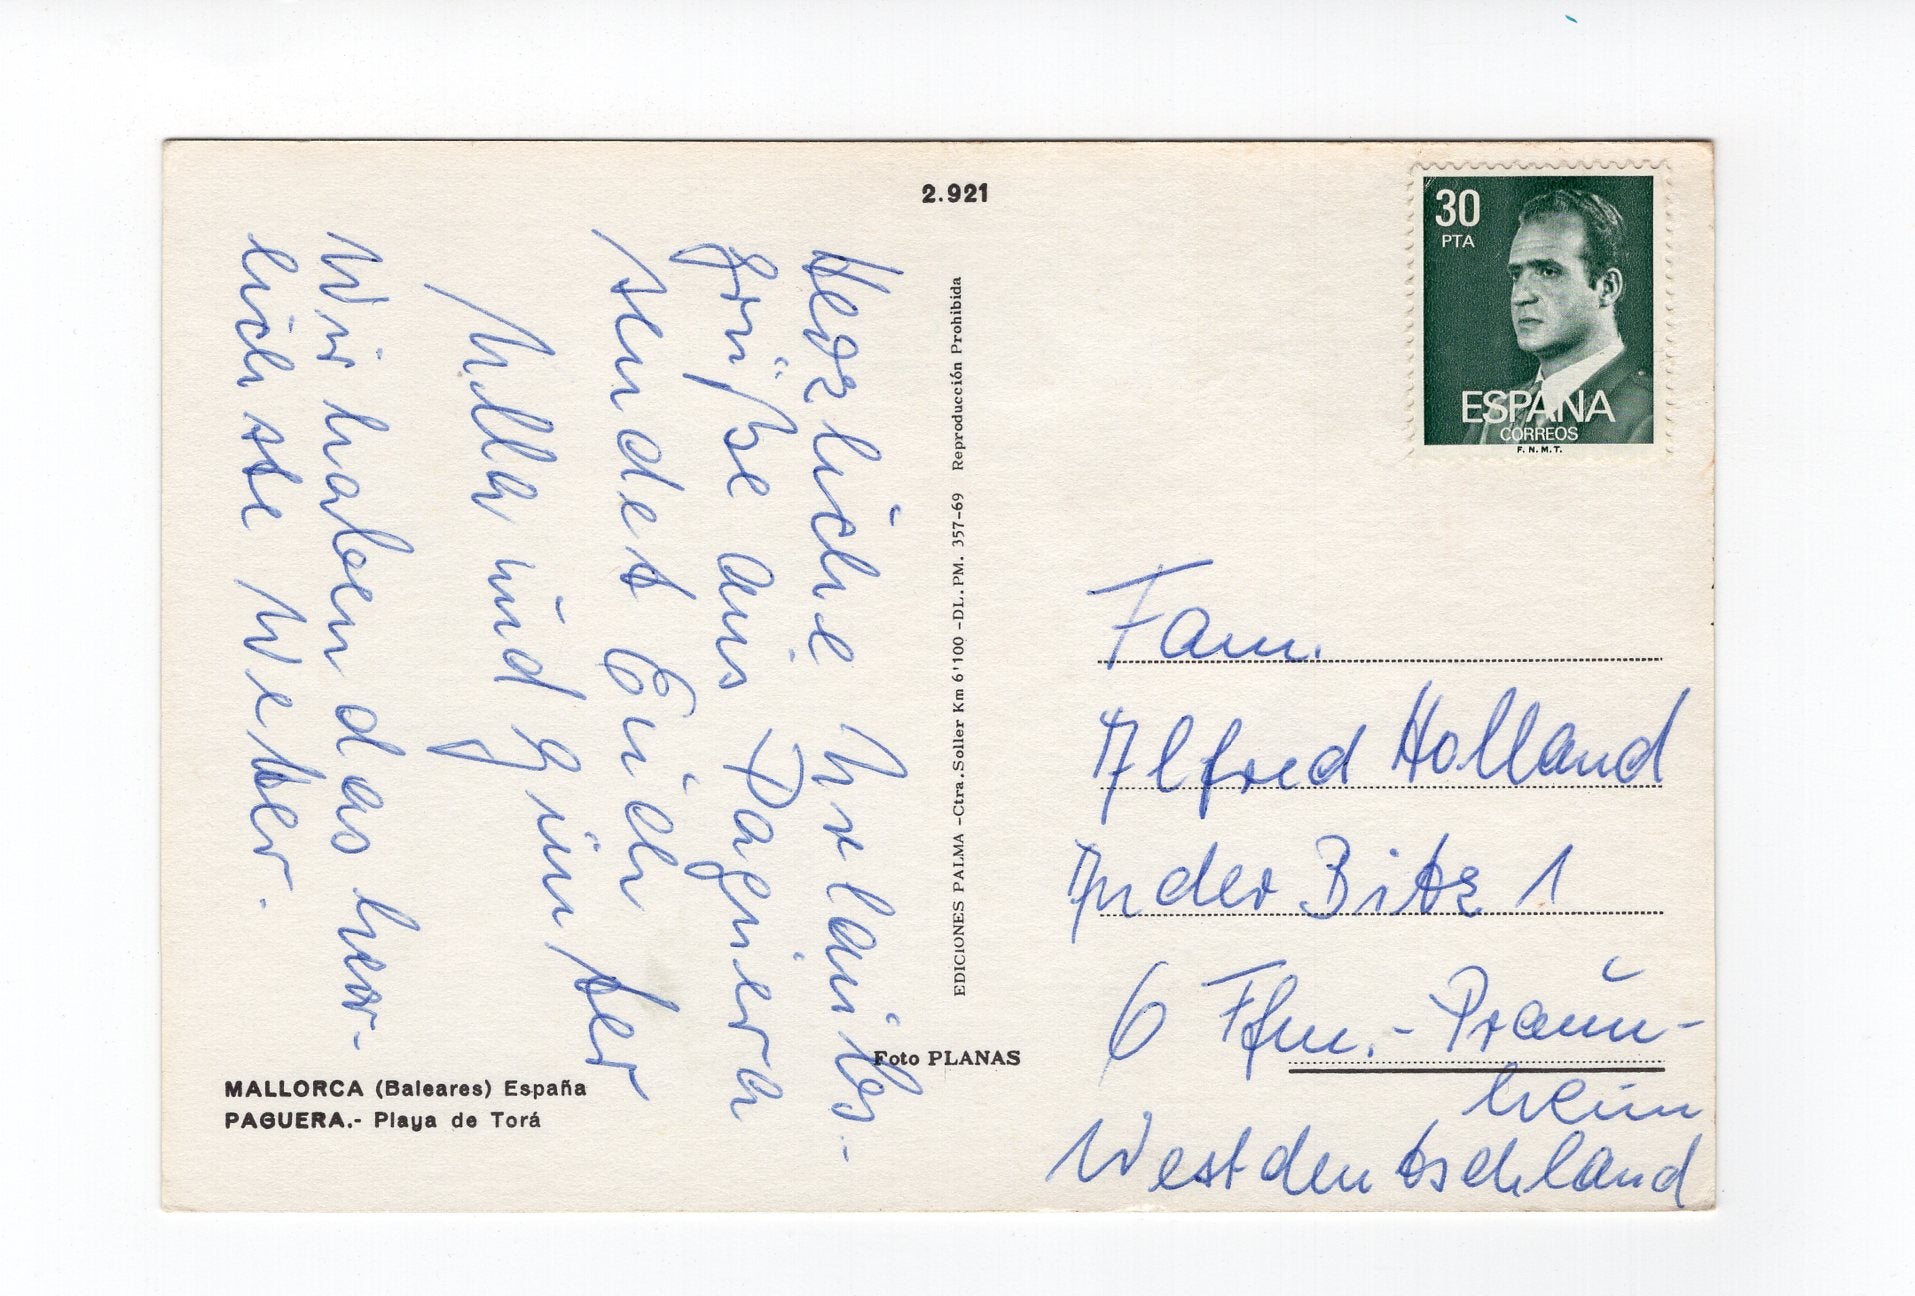 2.921
Herzliche Urlaubs-
grüße aus Paguera
sendet Euch
Ulla und Günter
Wir haben das herr-
lichste Wetter.
EDICIONES PALMA -Ctra. Soller Km 6'100 -DL. PM. 357-69 Reproducción Prohibida
Foto PLANAS
MALLORCA (Baleares) España
PAGUERA.- Playa de Torá
30
PTA
ESPAÑA
CORREOS
F. N. M. T.
Fam.
Alfred Holland
In der Bitz 1
6 Ffm.-Praun-
heim
Westdeutschland